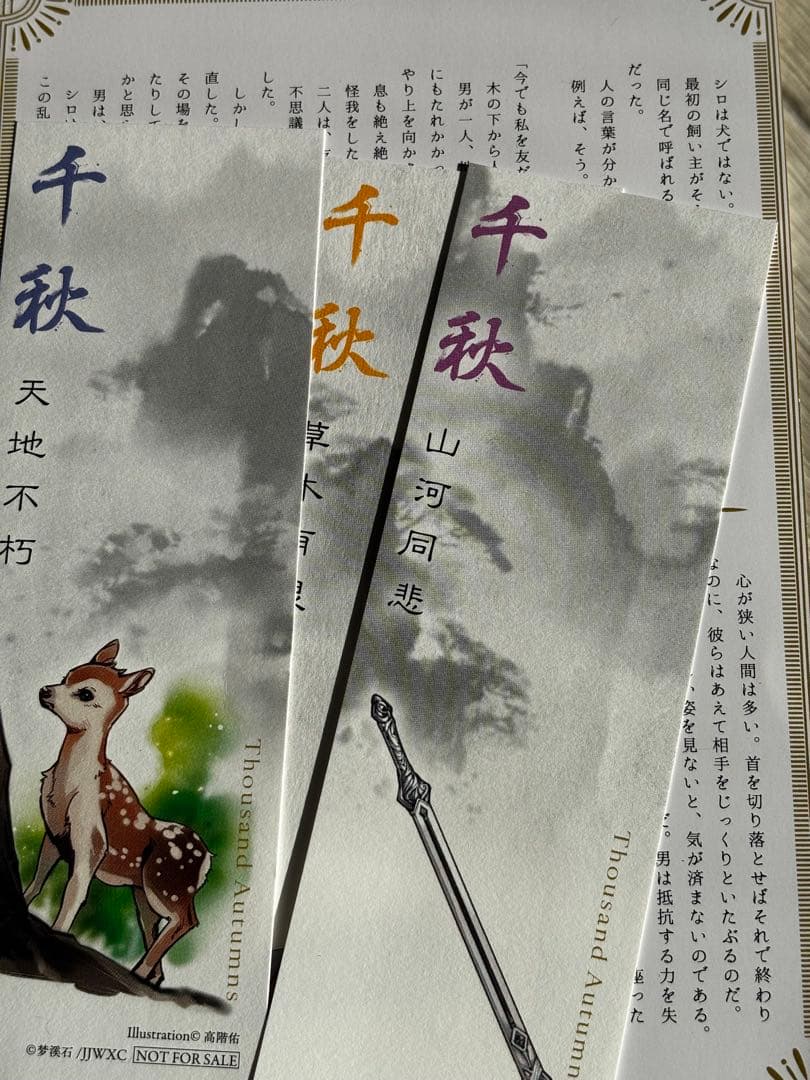 シロは犬ではない。
最初の飼い主がそ
同じ名で呼ばれる
だった。
人の言葉が分か
例えば、そう。
「今でも私を友だ
木の下から人
男が一人、
にもたれかかっ
やり上を向か
息も絶え絶
怪我をした
二人は、
不思議
した。
しか
直した。
その場を
たりして
かと思
男は、
シロ
この乱
心が狭い人間は多い。首を切り落とせばそれで終わり
なのに、彼らはあえて相手をじっくりといたぶるのだ。
姿を見ないと、気が済まないのである。
。男は抵抗する力を失
座った
千秋
山河同悲
Thousand Autumn
千秋
草木有
千秋
天地不朽
Thousand Autumns
Illustration© 高階佑
©梦溪石/JJWXC NOT FOR SALE